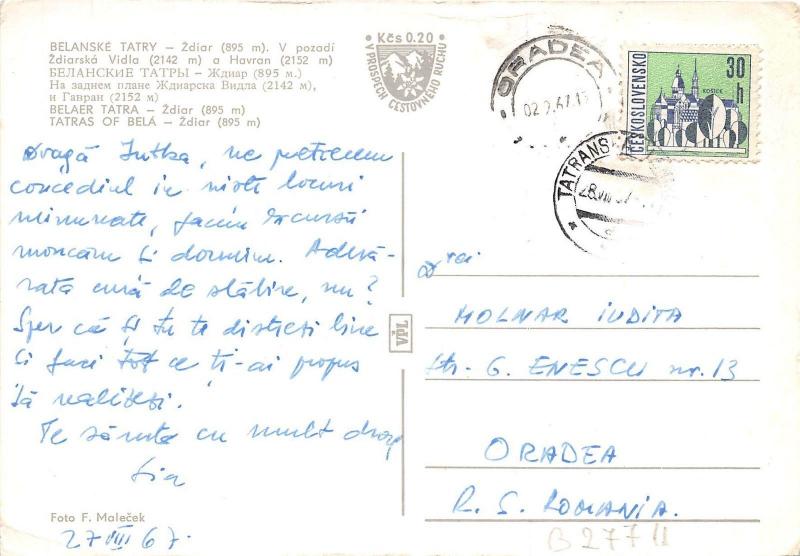 BELANSKÉ TATRY — Ždiar (895 m). V pozadí
Ždiarská Vidla (2142 m) a Havran (2152 m)
БЕЛАНСКИЕ ТАТРЫ — Ждиар (895 м.)
На заднем плане Ждиарска Видла (2142 м),
и Гавран (2152 м)
BELAER TATRA — Ždiar (895 m)
TATRAS OF BELÁ — Ždiar (895 m)
Kčs 0.20
V PROSPECH CESTOVNÉHO RUCHU
ORADEA
ČESKOSLOVENSKO
30 h
KOŠICE
TATRANS
Dragă Jutka, ne petrecem
concediul în niște locuri
minunate, facem excursii
mâncăm și dormim. Adevă-
rată cură de slăbire, nu?
Sper că și tu te distrezi bine
și faci tot ce ți-ai propus
să realizezi.
Te sărută cu mult drag
Lia
27 VIII 67.
Foto F. Maleček
VPL
MOLNAR IUDITA
str. G. ENESCU nr. 13
ORADEA
R. S. ROMANIA.
B 277 II